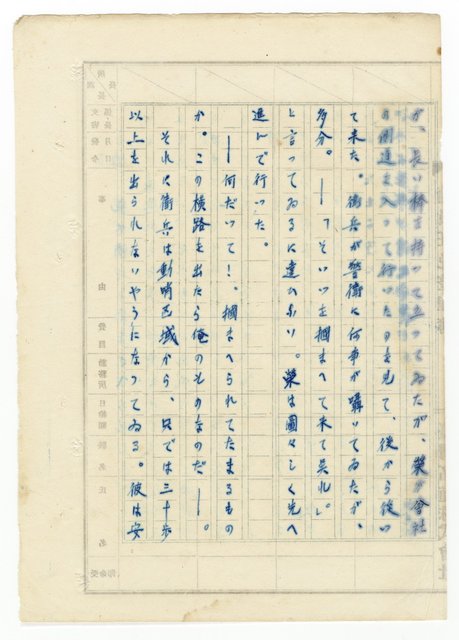 が、長い棒を持つて立つてゐたが、榮が會社
の側道を入つて行つたのを見て、後から從い
て来た。衛兵が警衛に何事か囁いてゐたが、
多分。――「そいつを掴まへて来て呉れ」。
と言つてゐるに違ひない。榮は圖々しく先へ
進んで行つた。
――何だいて！、掴まへられてたまるもの
か。この横路を出たら俺のものなのだ――。
それに衛兵は動哨区域から、只では三十歩
以上を出られないやうになつてゐる。彼は安